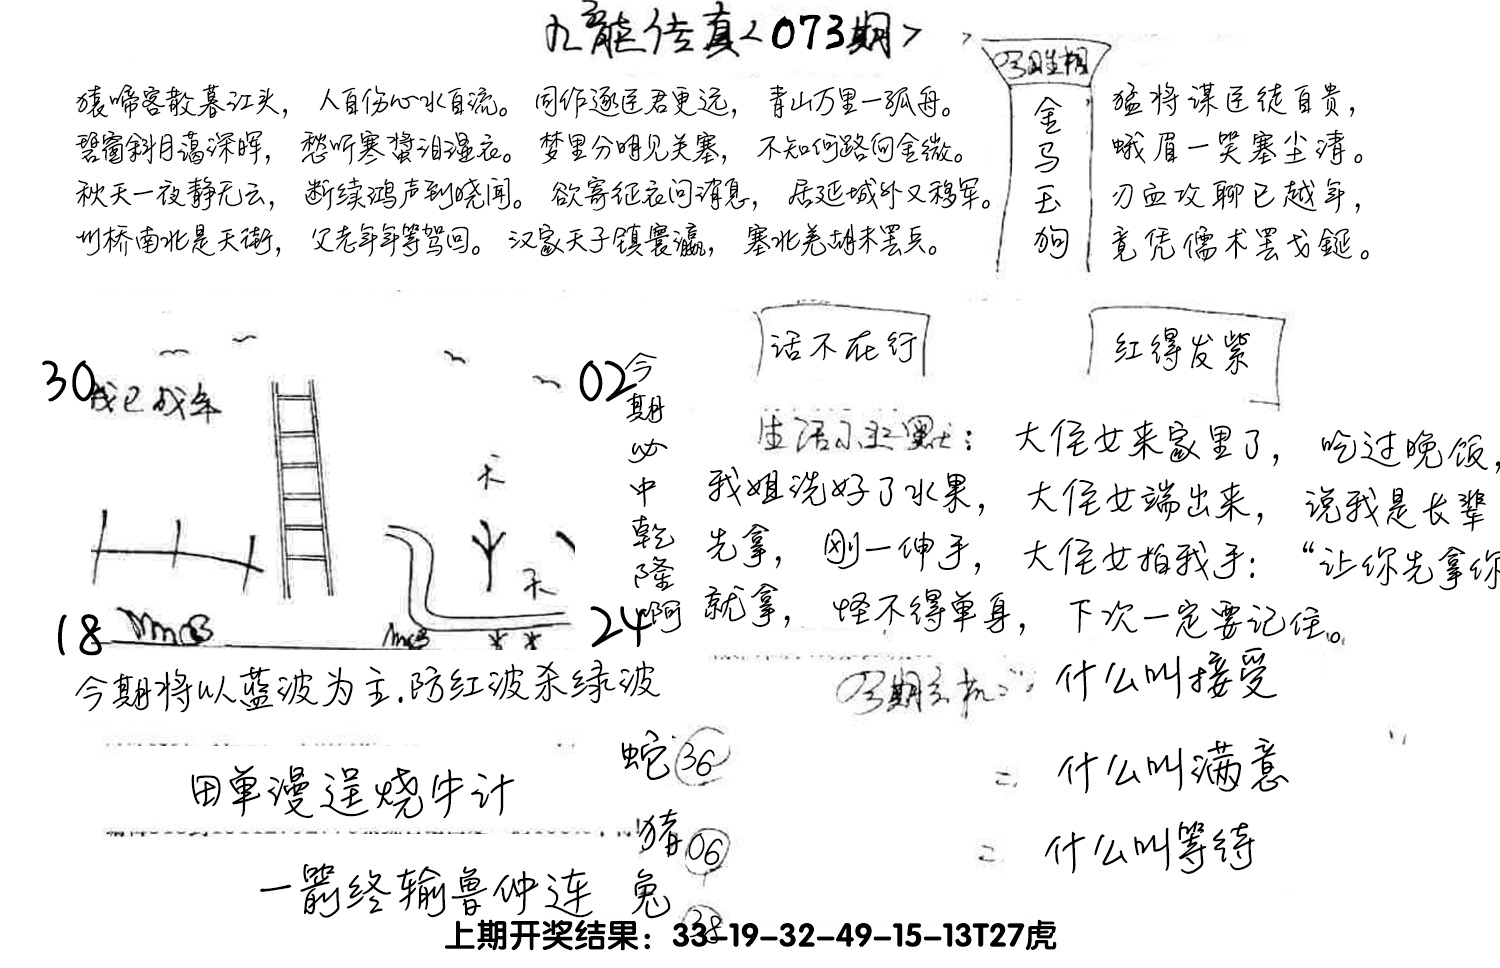 九龙传真<073期>
猿啼客散暮江头，人自伤心水自流。同作逐臣君更远，青山万里一孤舟。
碧窗斜月蔼深晖，愁听寒螀泪湿衣。梦里分明见关塞，不知何路向金微。
秋天一夜静无云，断续鸿声到晓闻。欲寄征衣问消息，居延城外又移军。
州桥南北是天街，父老年年等驾回。汉家天子镇寰瀛，塞北羌胡未罢兵。
金
马
玉
狗
猛将谋臣徒自贵，
蛾眉一笑塞尘清。
刃血攻聊已越年，
竟凭儒术罢戈鋋。
30
02
18
24
今期必中乾隆啊
今期将以蓝波为主.防红波杀绿波
话不在行
红得发紫
生活小幽默：大侄女来家里了，吃过晚饭，
我姐洗好了水果，大侄女端出来，说我是长辈
先拿，刚一伸手，大侄女拍我手：“让你先拿你
就拿，怪不得单身，下次一定要记住。
今期玄机：什么叫接受
什么叫满意
什么叫等待
田单漫逞烧牛计
一箭终输鲁仲连
蛇 36
猪 06
兔 38
上期开奖结果：33-19-32-49-15-13T27虎